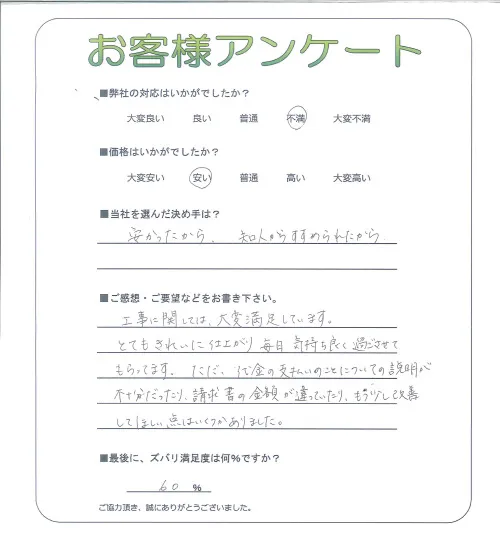 お客様アンケート
■弊社の対応はいかがでしたか？
大変良い 良い 普通 不満 大変不満
■価格はいかがでしたか？
大変安い 安い 普通 高い 大変高い
■当社を選んだ決め手は？
安かったから、知人からすすめられたから
■ご感想・ご要望などをお書き下さい。
工事に関しては、大変満足しています。
とてもきれいに仕上がり毎日気持ち良く過ごさせて
もらってます。ただ、代金の支払いのことについての説明が
不十分だったり、請求書の金額が違っていたり、もう少し改善
してほしい点はいくつかありました。
■最後に、ズバリ満足度は何%ですか？
60 %
ご協力頂き、誠にありがとうございました。